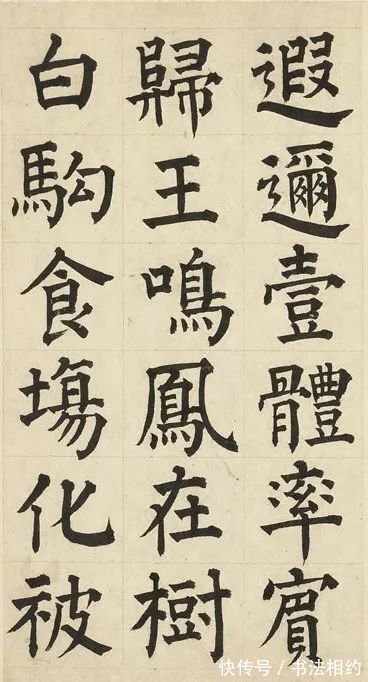 遐邇壹體率賓
歸王鳴鳳在樹
白駒食場化被
快传号/书法相约